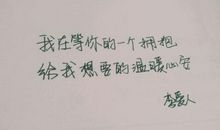 我在等你的一个拥抱
给我想要的温暖心安
李爱人